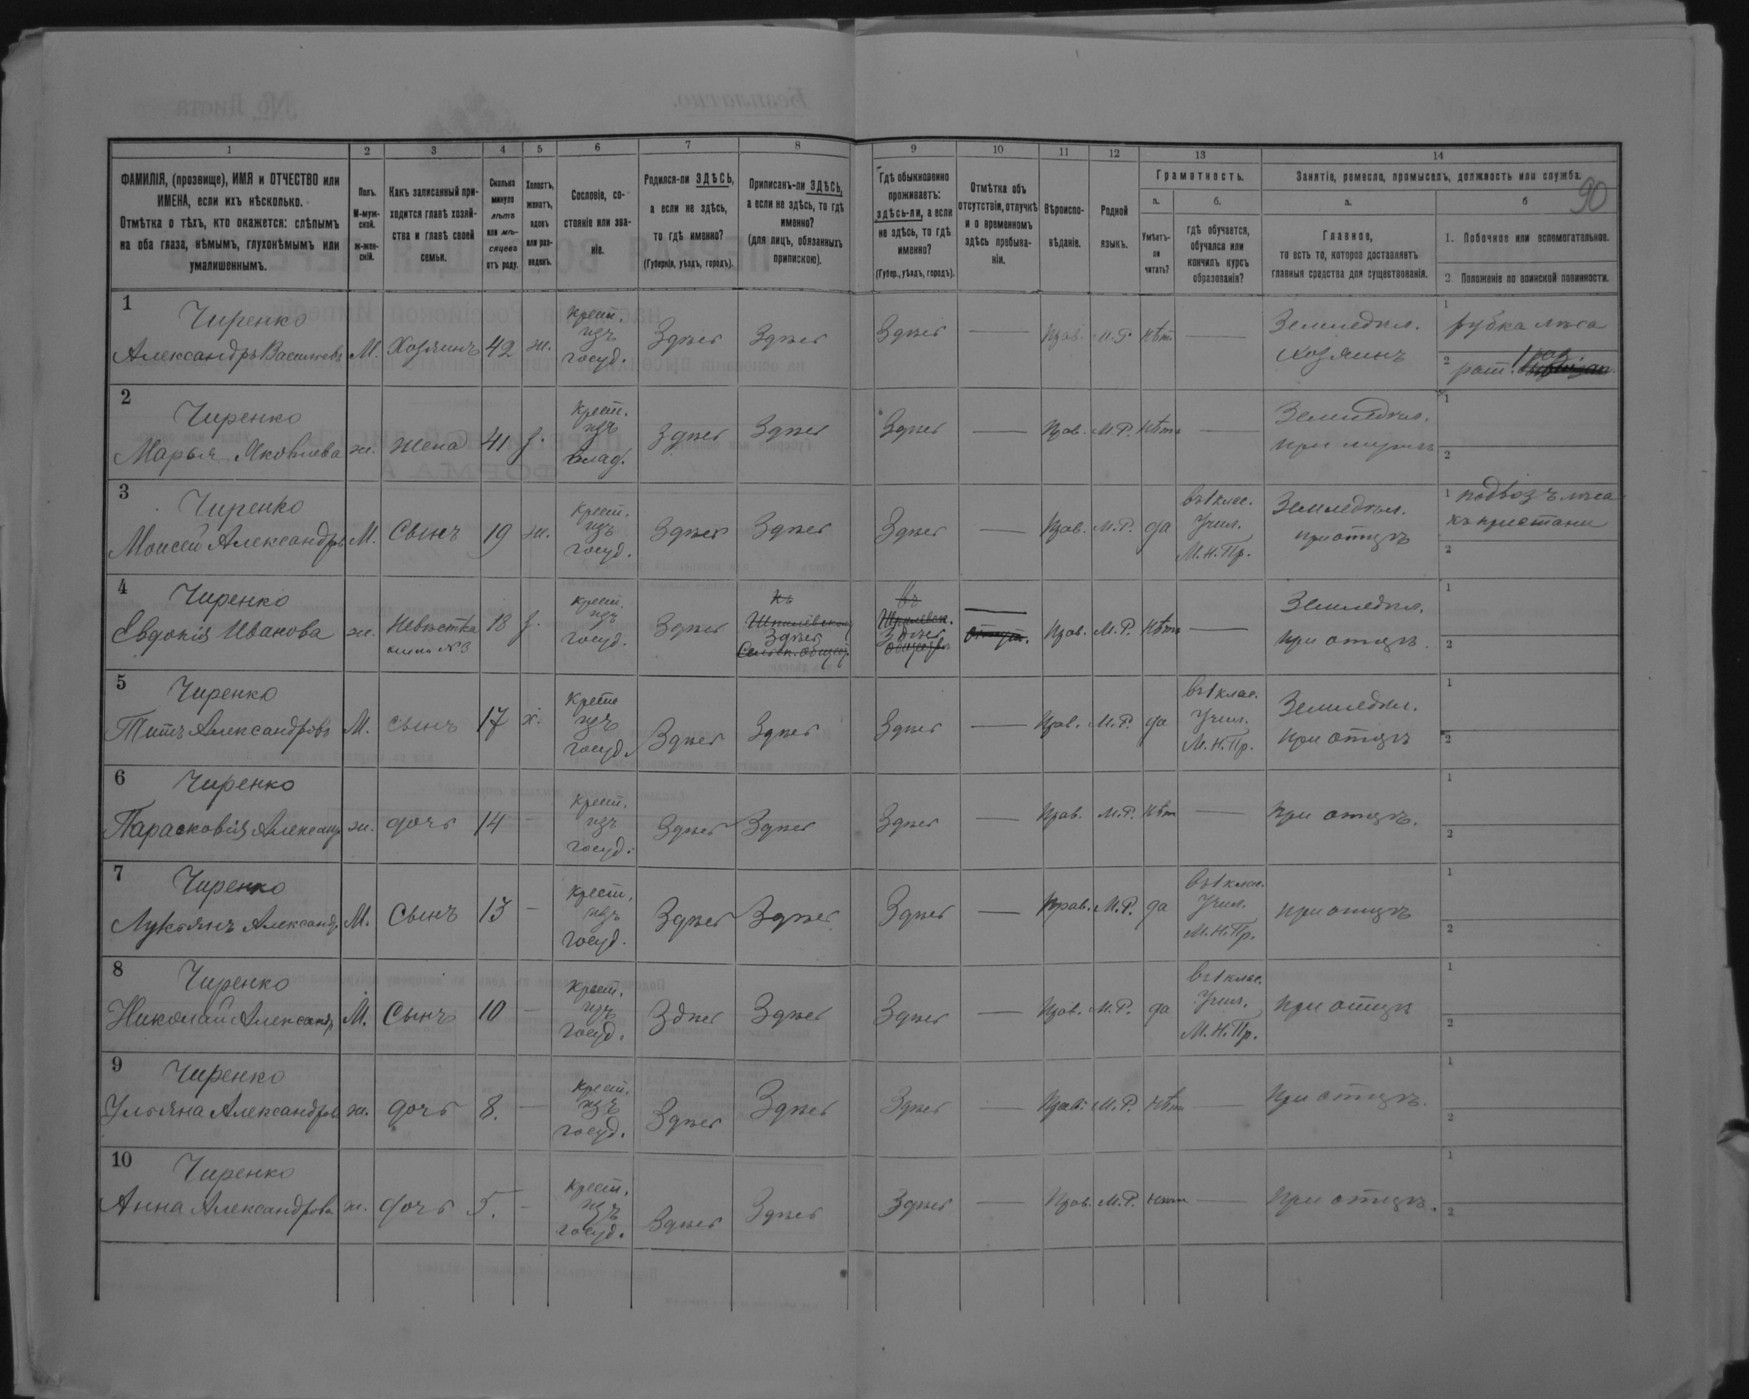 90
1 2 3 4 5 6 7 8 9 10 11 12 13 14
ФАМИЛІЯ, (прозвище), ИМЯ и ОТЧЕСТВО или
ИМЕНА, если ихъ нѣсколько.
Отмѣтка о тѣхъ, кто окажется: слѣпымъ
на оба глаза, нѣмымъ, глухонѣмымъ или
умалишеннымъ.
Полъ.
М-муж-
ской.
ж-жен-
скій.
Какъ записанный при-
ходится главѣ хозяй-
ства и главѣ своей
семьи.
Сколько
минуло
лѣтъ
или мѣ-
сяцевъ
отъ роду.
Холостъ,
женатъ,
вдовъ
или раз-
веденъ.
Сословіе, со-
стояніе или зва-
ніе.
Родился-ли ЗДѢСЬ,
а если не здѣсь,
то гдѣ именно?
(Губернія, уѣздъ, городъ).
Приписанъ-ли ЗДѢСЬ,
а если не здѣсь, то гдѣ
именно?
(для лицъ, обязанныхъ
припискою).
Гдѣ обыкновенно
проживаетъ:
здѣсь-ли, а если
не здѣсь, то гдѣ
именно?
(Губер., уѣздъ, городъ).
Отмѣтка объ
отсутствіи, отлучкѣ
и о временномъ
здѣсь пребыва-
ніи.
Вѣроиспо-
вѣданіе.
Родной
языкъ.
Грамотность.
а.
Умѣетъ-
ли
читать?
б.
гдѣ обучается,
обучался или
кончилъ курсъ
образованія?
Занятіе, ремесло, промыселъ, должность или служба.
а.
Главное,
то есть то, которое доставляетъ
главныя средства для существованія.
б
1. Побочное или вспомогательное.
2 Положеніе по воинской повинности.
1
Чиренко
Александръ Васильевъ М. Хозяинъ 42 ж.
Крест.
изъ
госуд.
Здѣсь Здѣсь Здѣсь — Прав. М.Р. нѣт —
Земледѣл.
хозяинъ
1 рубка лѣса
2 рат. 1 раз.
2
Чиренко
Марья Яковлева ж. жена 41 з.
Крест.
изъ
влад.
Здѣсь Здѣсь Здѣсь — Прав. М.Р. нѣтъ —
Земледѣл.
при мужѣ
1
2
3
Чиренко
Моисей Александръ М. Сынъ 19 ж.
Крест.
изъ
госуд.
Здѣсь Здѣсь Здѣсь — Прав. М.Р. да
въ 1 клас.
Учил.
М.Н.Пр.
Земледѣл.
при отцѣ
1 подвозъ лѣса
къ пристани
2
4
Чиренко
Евдокія Иванова ж. Невѣстка 18 з.
жена №3
Крест.
изъ
госуд.
Здѣсь
къ
Здѣсь
Сельск. общест.
въ
Здѣсь
— Прав. М.Р. нѣтъ —
Земледѣл.
при отцѣ.
1
2
5
Чиренко
Титъ Александровъ М. сынъ 17 х.
Крест
изъ
госуд.
Здѣсь Здѣсь Здѣсь — Прав. М.Р. да
въ 1 клас.
Учил.
М.Н.Пр.
Земледѣл.
при отцѣ
1
2
6
Чиренко
Парасковія Александр ж. дочь 14 —
Крест.
изъ
госуд.
Здѣсь Здѣсь Здѣсь — Прав. М.Р. нѣт —
при отцѣ.
1
2
7
Чиренко
Лукьянъ Александр. М. Сынъ 13 —
Крест.
изъ
госуд.
Здѣсь Здѣсь Здѣсь — Прав. М.Р. да
въ 1 клас.
Учил.
М.Н.Пр.
при отцѣ
1
2
8
Чиренко
Николай Александр М. Сынъ 10 —
Крест.
изъ
госуд.
Здѣсь Здѣсь Здѣсь — Прав. М.Р. да
въ 1 клас.
Учил.
М.Н.Пр.
при отцѣ
1
2
9
Чиренко
Ульяна Александров ж. дочь 8. —
Крест.
изъ
госуд.
Здѣсь Здѣсь Здѣсь — Прав. М.Р. нѣт —
при отцѣ.
1
2
10
Чиренко
Анна Александрова ж. дочь 5. —
Крест.
изъ
госуд.
Здѣсь Здѣсь Здѣсь — Прав. М.Р. нѣт —
при отцѣ.
1
2